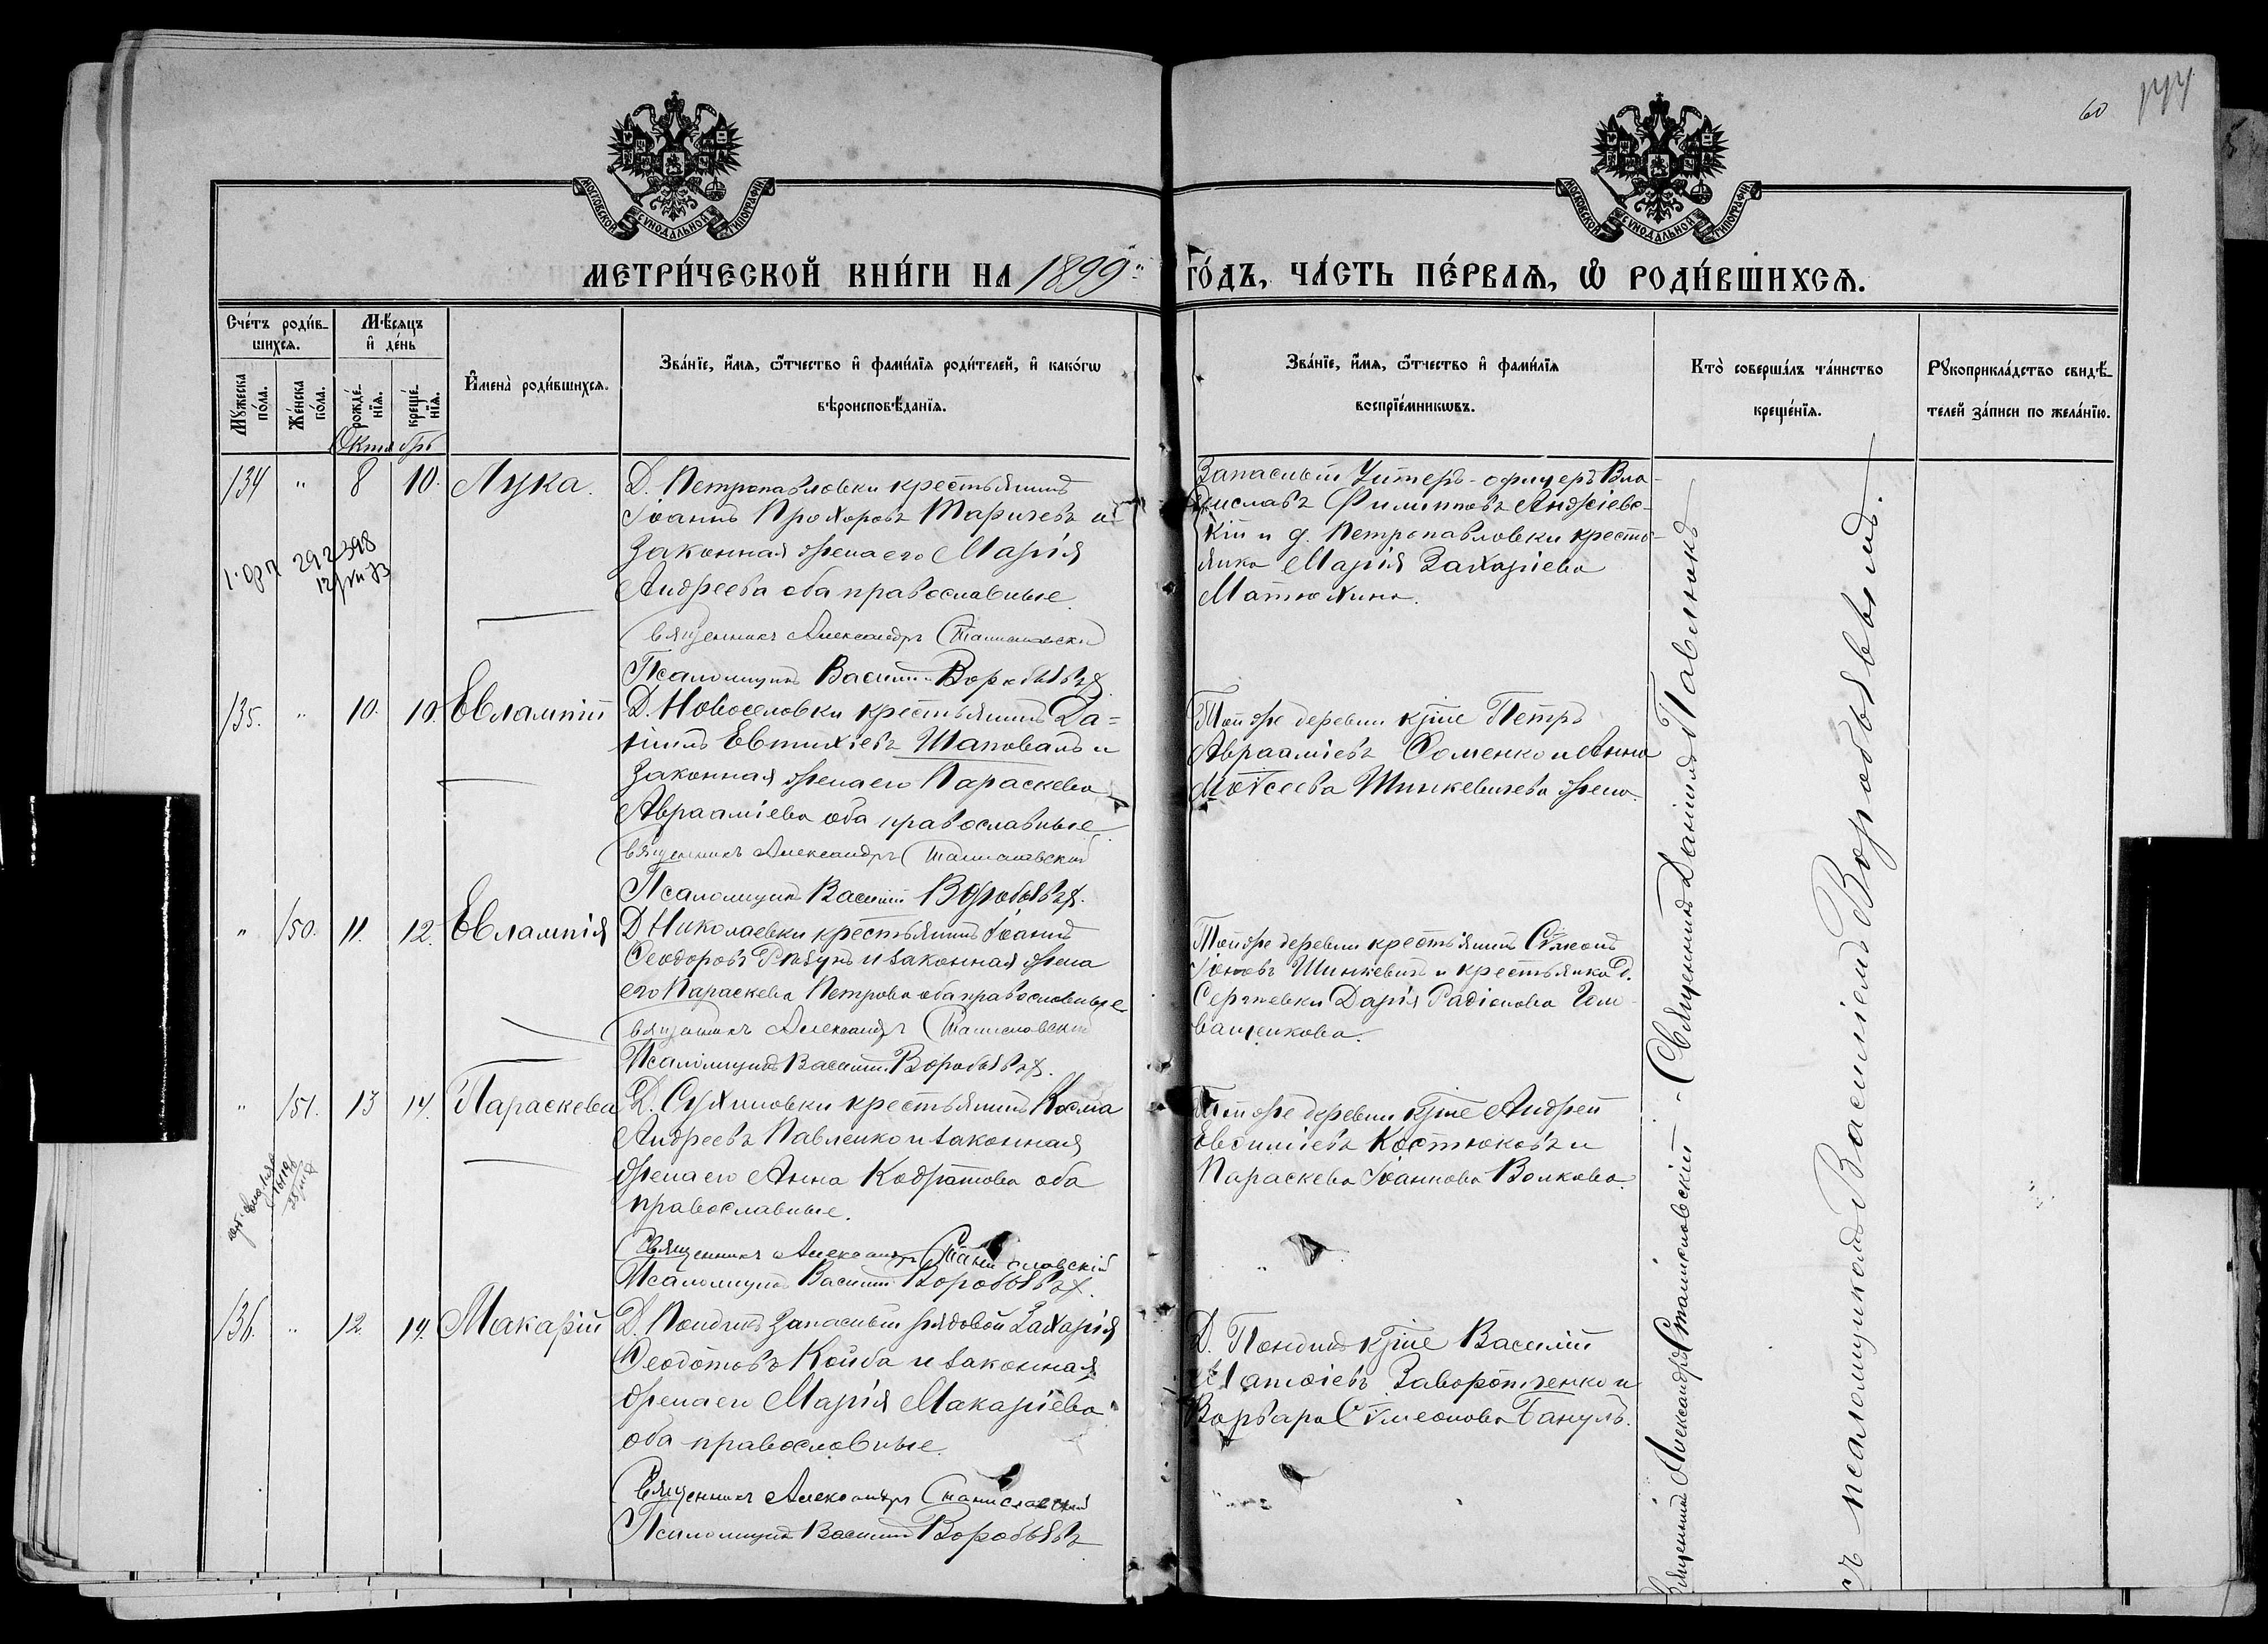 60 144
МОСКОВСКОЙ СѴНОДАЛЬНОЙ ТИПОГРАФІИ
МОСКОВСКОЙ СѴНОДАЛЬНОЙ ТИПОГРАФІИ
МЕТРИ́ЧЕСКОЙ КНИ́ГИ НА 1899 ГО́ДЪ, ЧА́СТЬ ПЕ́РВАѦ, Ѡ҆ РОДИ́ВШИХСѦ.
Сче́тъ роди́в-
шихсѧ.
Мꙋжеска по́ла.
Же́нска по́ла.
Мѣ́сѧцъ
и҆ де́нь
рожде́-
нїѧ.
креще́-
нїѧ.
И҆мена̀ роди́вшихсѧ.
Зва́нїе, и҆́мѧ, ѻ҆́тчество и҆ фами́лїѧ роди́телей, и҆ како́гѡ
вѣроисповѣ́данїѧ.
Зва́нїе, и҆́мѧ, ѻ҆́тчество и҆ фами́лїѧ
воспрїе́мникѡвъ.
Кто̀ соверша́лъ та́инство
креще́нїѧ.
Рꙋкоприкла́дство свидѣ́-
телей за́писи по жела́нїю.
Октябрь
134 " 8 10. Лука.
Д. Петропавловки крестьянинъ
Іоаннъ Прохоровъ Таричевъ и
законная жена его Марія
Андреева оба православные
Священникъ Александръ Станиславскій
Псаломщикъ Василій Воробьевъ.
Запасный Унтеръ-офицеръ Вла-
диславъ Филипповъ Анджіевс-
кій и д. Петропавловки кресть-
янка Марія Захаріева
Матюхина.
292398
135. " 10. 10. Евлампій
Д. Новоселовки крестьянинъ Да=
ніилъ Евтихіевъ Шаповалъ и
законная жена его Параскева
Авраамiева оба православные
Священникъ Александръ Станиславскій
Псаломщикъ Василій Воробьевъ.
Той же деревни кр-не Петръ
Авраамiевъ Фоменко и Анна
Моѵсеева Шинкевичева жена.
" 150. 11. 12. Евлампія
Д. Николаевки крестьянинъ Іоаннъ
Ѳеодоровъ и законная жена
его Параскева Петрова оба православные
Священникъ Александръ Станиславскій
Псаломщикъ Василій Воробьевъ.
Той же деревни крестьянинъ Сѵмеонъ
Іоновъ Шинкевичъ и крестьянка д.
Сергѣевки Дарія Радіонова
ващенкова.
" 151. 13 14. Параскева
Д. Сухиновки крестьянинъ Косма
Андреевъ Павленко и законная
жена его Анна Кодратова оба
православные.
Священникъ Александръ Станиславскій
Псаломщикъ Василій Воробьевъ.
Той же деревни кр-не Андрей
Евсиміевъ Костюковъ и
Параскева Іоаннова Волкова.
136. " 12. 14. Макарій
Д. запасный рядовой Захарія
Ѳеодотовъ Койда и законная
жена его Марія Макаріева
оба православные
Священникъ Александръ Станиславскій
Псаломщикъ Василій Воробьевъ
Д. кр-не Василій
Матѳіевъ Заворотченко и
Варвара Сѵмеонова
Священникъ Александръ Станиславскій - Священникъ Даніилъ Павлюкъ
съ псаломщикомъ Василіемъ Воробьевымъ.